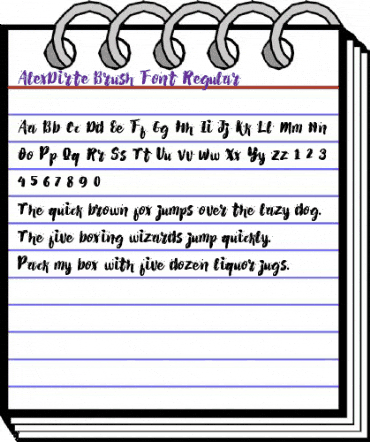 AlexDirte Brush Font Regular
Aa Bb Cc Dd Ee Ff Gg Hh Ii Jj Kk Ll Mm Nn
Oo Pp Qq Rr Ss Tt Uu Vv Ww Xx Yy Zz 1 2 3
4 5 6 7 8 9 0
The quick brown fox jumps over the lazy dog.
The five boxing wizards jump quickly.
Pack my box with five dozen liquor jugs.